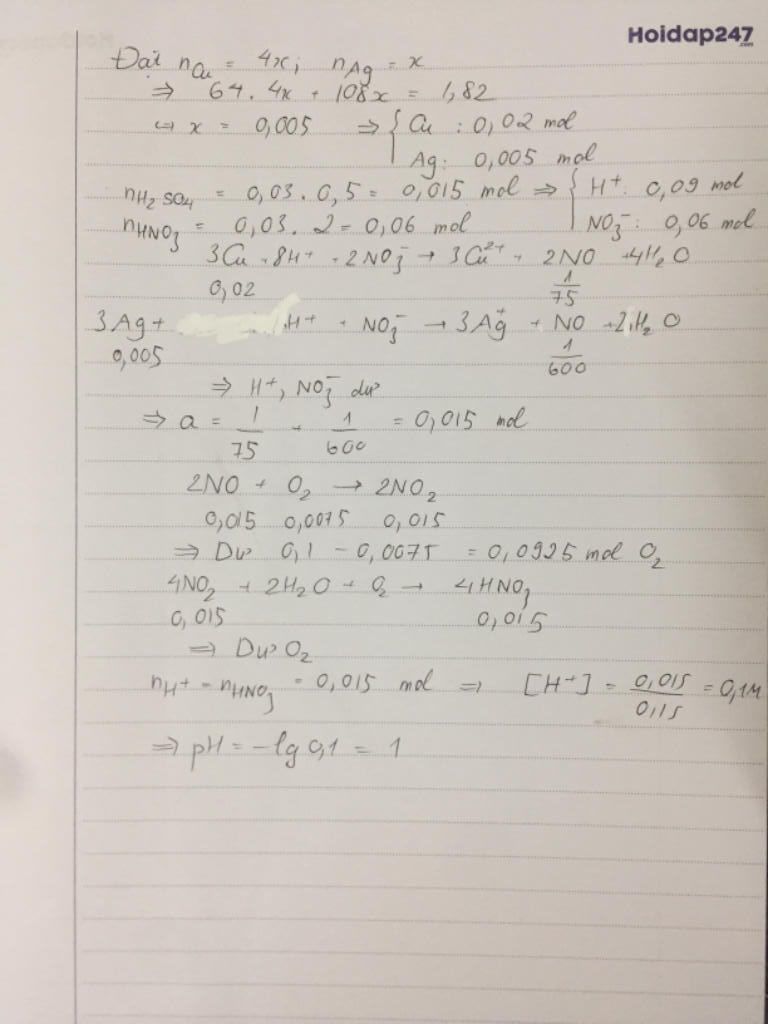 Hoidap247
.com
Đặt nCu = 4x; nAg = x
⇒ 64. 4x + 108x = 1,82
⇔ x = 0,005 ⇒ { Cu : 0,02 mol
Ag: 0,005 mol
nH2SO4 = 0,03 . 0,5 = 0,015 mol ⇒ { H+: 0,09 mol
nHNO3 = 0,03. 2 = 0,06 mol NO3-: 0,06 mol
3Cu + 8H+ + 2NO3- → 3Cu2+ + 2NO + 4H2O
0,02 1/75
3Ag + H+ + NO3- → 3Ag+ + NO + 2H2O
0,005 1/600
⇒ H+, NO3- dư
⇒ a = 1/75 + 1/600 = 0,015 mol
2NO + O2 → 2NO2
0,015 0,0075 0,015
⇒ Dư 0,1 - 0,0075 = 0,0925 mol O2
4NO2 + 2H2O + O2 → 4HNO3
0,015 0,015
⇒ Dư O2
nH+ = nHNO3 = 0,015 mol ⇒ [H+] = 0,015/0,15 = 0,1M
⇒ pH = -lg 0,1 = 1